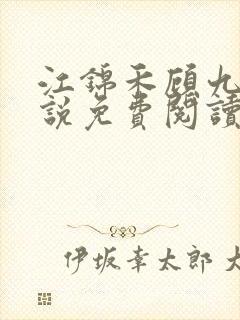 江錦禾顧九
說免費閱讀
伊坂幸太郎 大